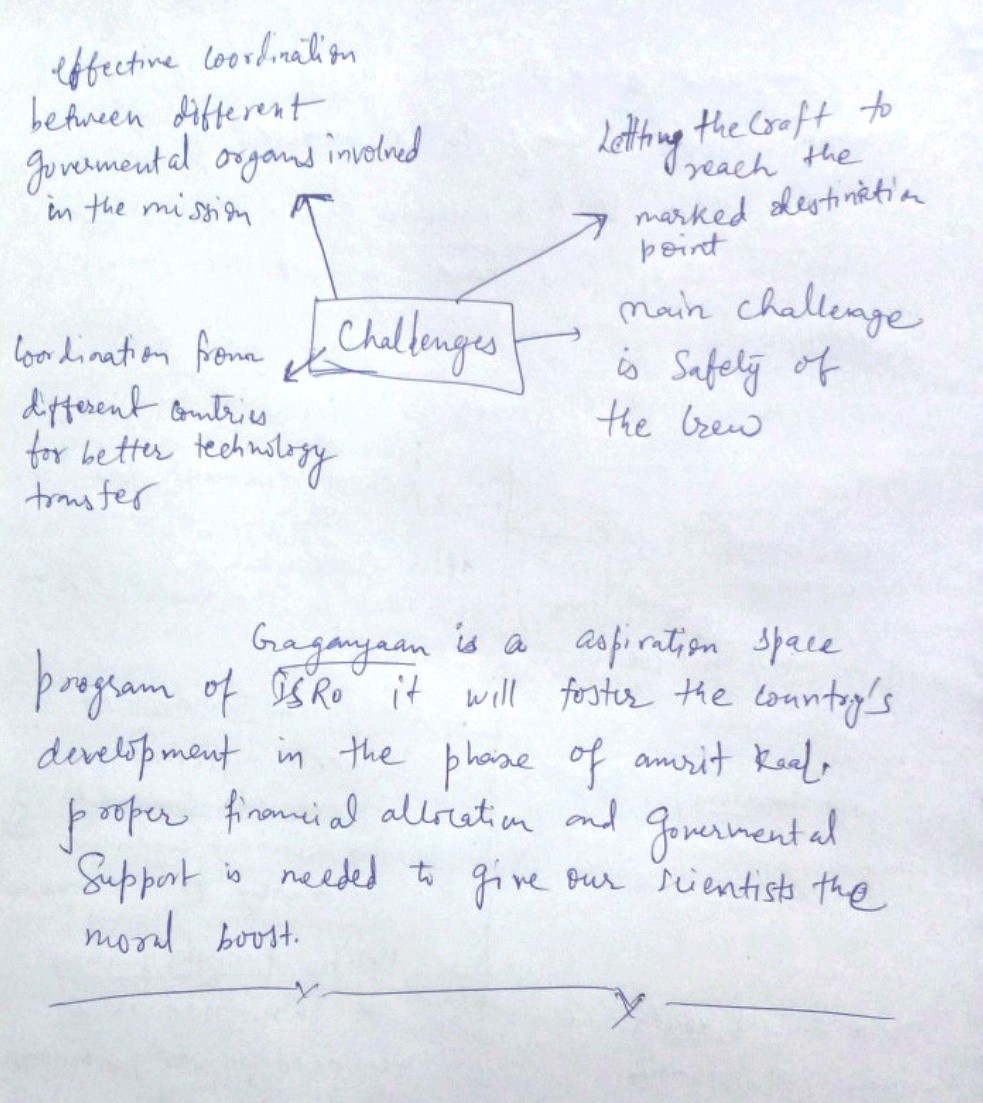 effective Coordination
between different
govermental organs involved
in the mission
Letting the Craft to
reach the
marked destination
point
Challenges
main challenge
is Safety of
the Crew
Coordination from
different Countries
for better technology
transfer
Gaganyaan is a aspiration space
program of ISRO it will foster the Country's
development in the phase of amrit Kaal.
proper financial allocation and govermental
Support is needed to give our scientists the
moral boost.